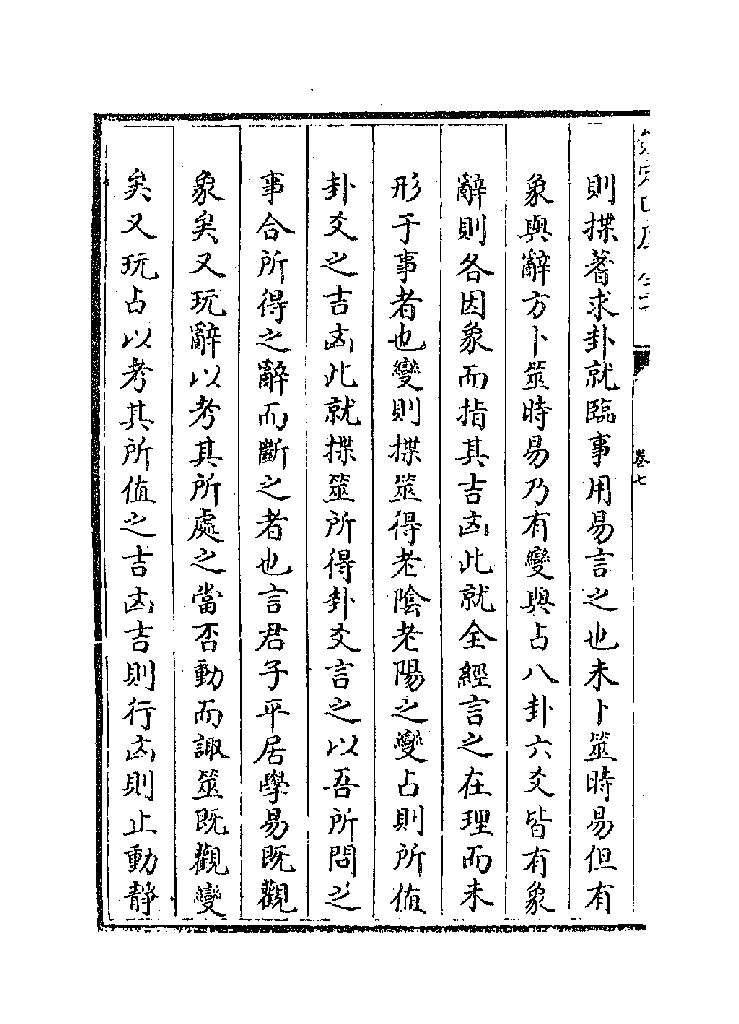 則揲蓍求卦就臨事用易言之也未卜筮時易但有
象與辭方卜筮時易乃有變與占八卦六爻皆有象
辭則各因象而指其吉凶此就全經言之在理而未
形于事者也變則揲筮得老陰老陽之變占則所值
卦爻之吉凶此就揲筮所得卦爻言之以吾所問之
事合所得之辭而斷之者也言君子平居學易既觀
象矣又玩辭以考其所處之當否動而諏筮既觀變
矣又玩占以考其所值之吉凶吉則行凶則止動靜
卷七